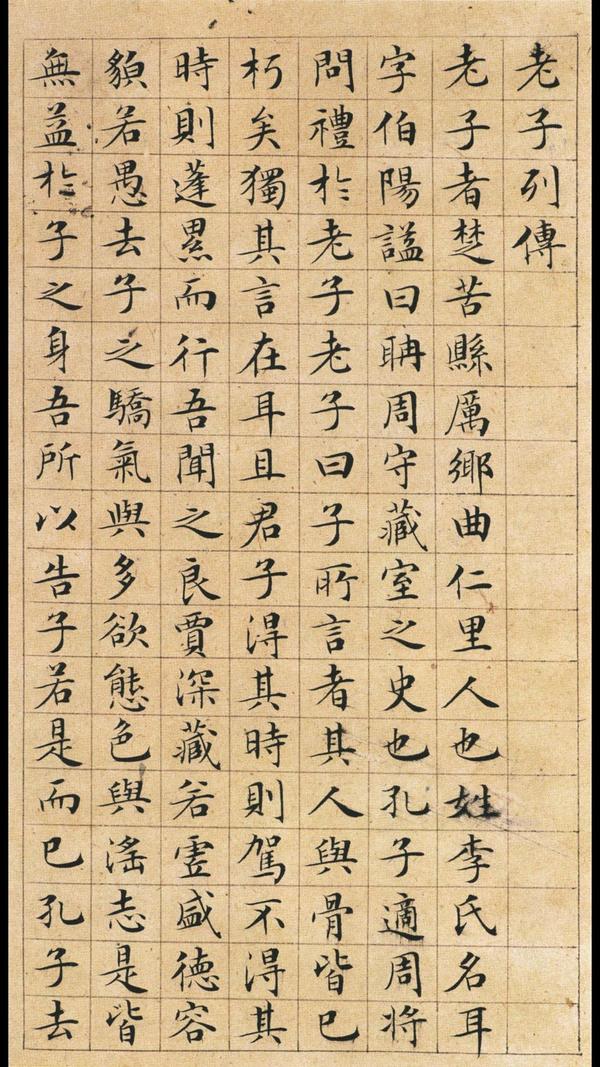 老子列傳
老子者楚苦縣厲鄉曲仁里人也姓李氏名耳
字伯陽謚曰聃周守藏室之史也孔子適周將
問禮於老子老子曰子所言者其人與骨皆已
朽矣獨其言在耳且君子得其時則駕不得其
時則蓬累而行吾聞之良賈深藏若虛盛德容
貌若愚去子之驕氣與多欲態色與滛志是皆
無益於子之身吾所以告子若是而已孔子去